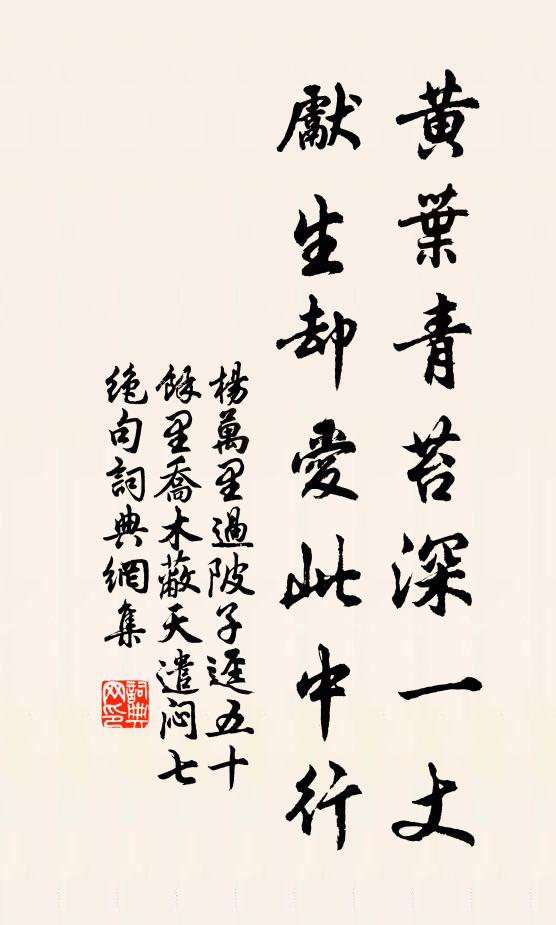 黄葉青苔深一丈
獻生却愛此中行
楊萬里過陂子逕五十
餘里喬木蔽天遣闷七
绝句詞典網集
詞典网印